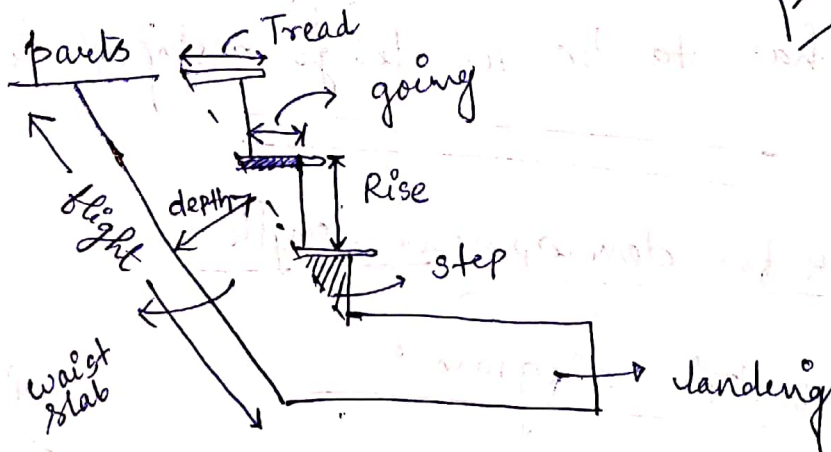 parts
Tread
going
Rise
depth
flight
step
waist
slab
landing